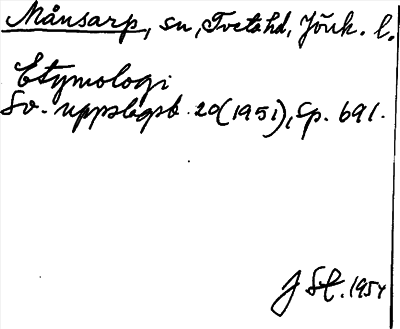 Månsarp, sn, Tveta hd, Jönk. l.
Etymologi
Sv. uppslagsb. 20 (1951), sp. 691.
J St. 1954